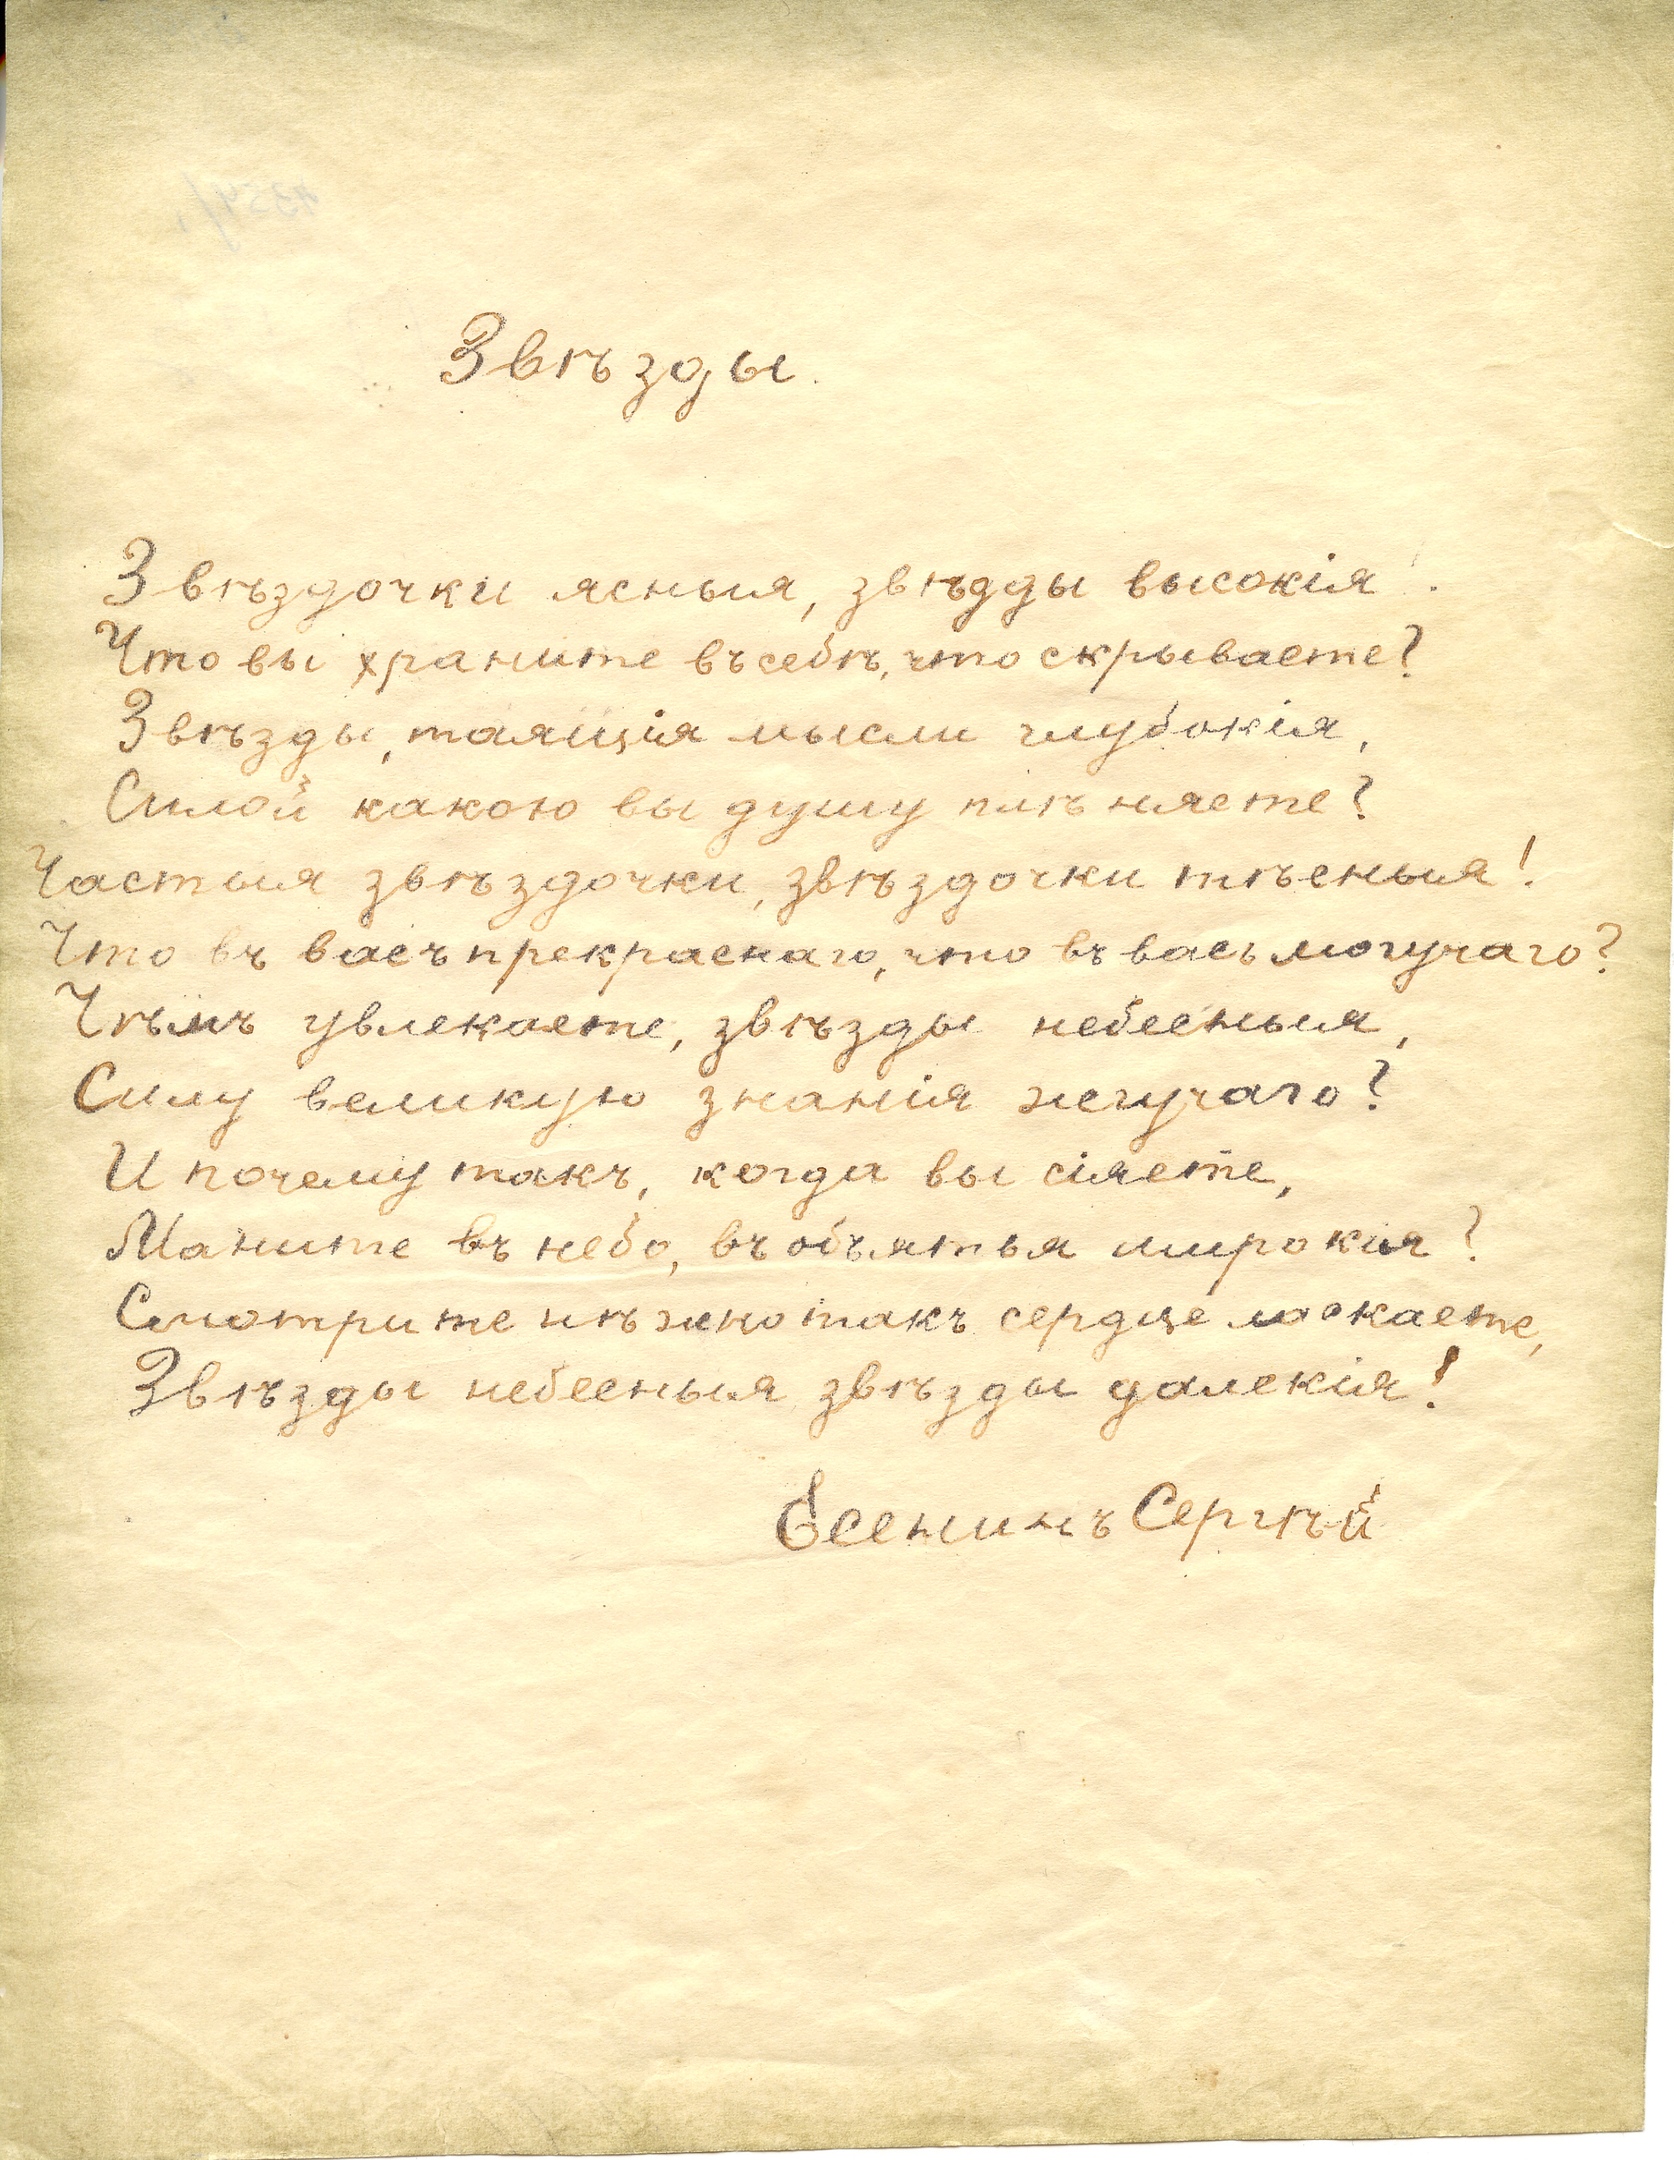 Звѣзды.
Звѣздочки ясныя, звѣзды высокія!
Что вы храните въ себѣ, что скрываете?
Звѣзды, таящія мысли глубокія,
Силой какою вы душу плѣняете?
Частыя звѣздочки, звѣздочки тѣсныя!
Что въ васъ прекраснаго, что въ васъ могучаго?
Чѣмъ увлекаете, звѣзды небесныя,
Силу великую знанія жгучаго?
И почему такъ, когда вы сіяете,
Маните въ небо, въ объятья широкія?
Смотрите нѣжно такъ сердце ласкаете,
Звѣзды небесныя звѣзды далекія!
Есенинъ Сергѣй